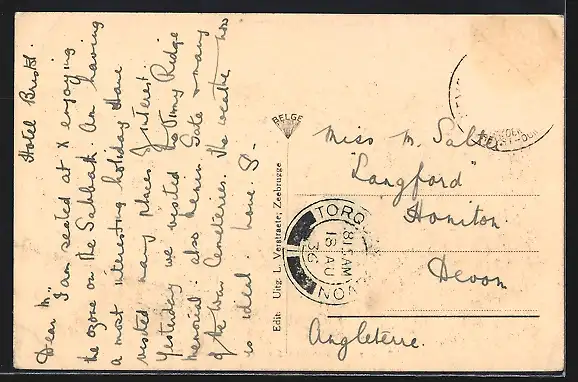 Hotel Bristol.
Dear M,
I am seated at X enjoying
the ozone on the Sabbath. Am having
a most interesting holiday. Have
visited many places of interest
Yesterday we visited Vimy Ridge
memorial: also Menin Gate & many
of the War Cemeteries. The weather here
is ideal. Love. S-
Edit. Uitg. L. Verstraete, Zeebrugge
BELGE
Miss M. Salter
"Langford"
Honiton
Devon
Angleterre.
TORQUAY DEVON
8 15 AM
18 AU
36